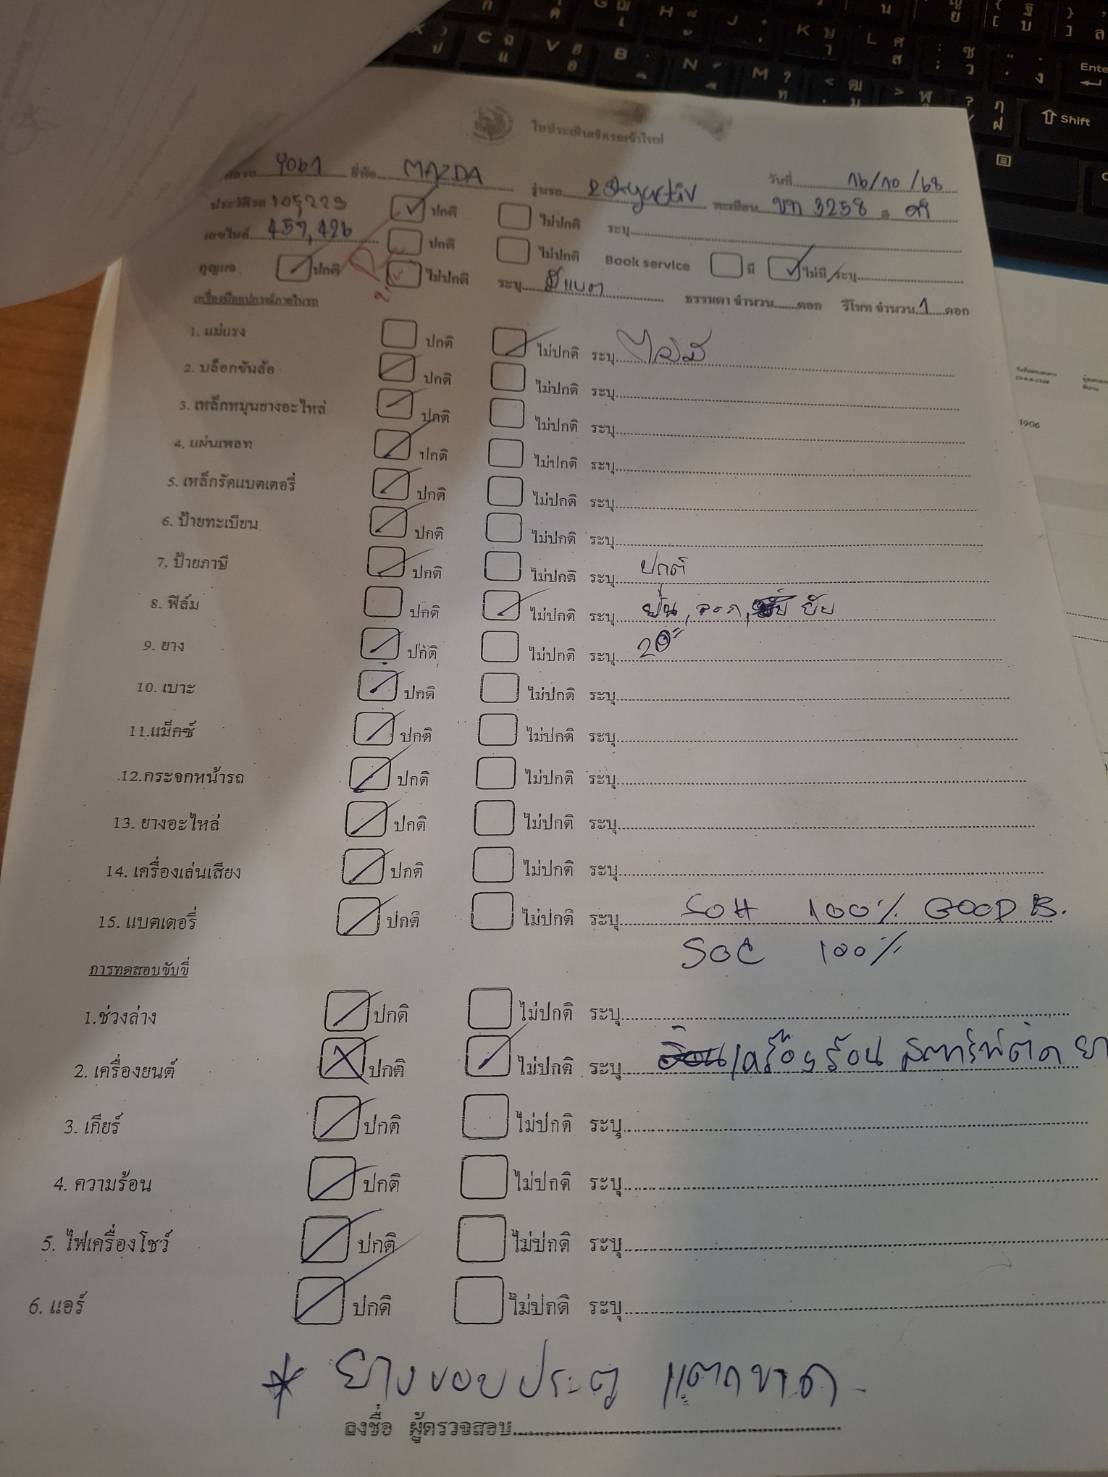 ใบประเมินสภาพรถเข้าใหม่
ยี่ห้อ MAZDA รุ่นรถ วันที่ 16/10/68
ทะเบียน 3258
ปกติ ไม่ปกติ ระบุ
ปกติ ไม่ปกติ Book service มี ไม่มี ระบุ
กุญแจ ปกติ ไม่ปกติ ระบุ มีแบต ธรรมดา จำนวน ดอก รีโมท จำนวน 1 ดอก
เครื่องมืออุปกรณ์ภายในรถ
1. แม่แรง ปกติ ไม่ปกติ ระบุ ไม่มี
2. บล็อกขันล้อ ปกติ ไม่ปกติ ระบุ
3. เหล็กหมุนยางอะไหล่ ปกติ ไม่ปกติ ระบุ
4. แผ่นเพลท ปกติ ไม่ปกติ ระบุ
5. เหล็กรัดแบตเตอรี่ ปกติ ไม่ปกติ ระบุ
6. ป้ายทะเบียน ปกติ ไม่ปกติ ระบุ
7. ป้ายภาษี ปกติ ไม่ปกติ ระบุ ปกติ
8. ฟิล์ม ปกติ ไม่ปกติ ระบุ
9. ยาง ปกติ ไม่ปกติ ระบุ
10. เบาะ ปกติ ไม่ปกติ ระบุ
11.แม็กซ์ ปกติ ไม่ปกติ ระบุ
12.กระจกหน้ารถ ปกติ ไม่ปกติ ระบุ
13. ยางอะไหล่ ปกติ ไม่ปกติ ระบุ
14. เครื่องเล่นเสียง ปกติ ไม่ปกติ ระบุ
15. แบตเตอรี่ ปกติ ไม่ปกติ ระบุ SOH 100% GOOD B.
SOC 100%
การทดสอบขับขี่
1.ช่วงล่าง ปกติ ไม่ปกติ ระบุ
2. เครื่องยนต์ ปกติ ไม่ปกติ ระบุ เครื่องร้อน สตาร์ทติด
3. เกียร์ ปกติ ไม่ปกติ ระบุ
4. ความร้อน ปกติ ไม่ปกติ ระบุ
5. ไฟเครื่องโชว์ ปกติ ไม่ปกติ ระบุ
6. แอร์ ปกติ ไม่ปกติ ระบุ
* ยางขอบประตู แตกขาด
ลงชื่อ ผู้ตรวจสอบ